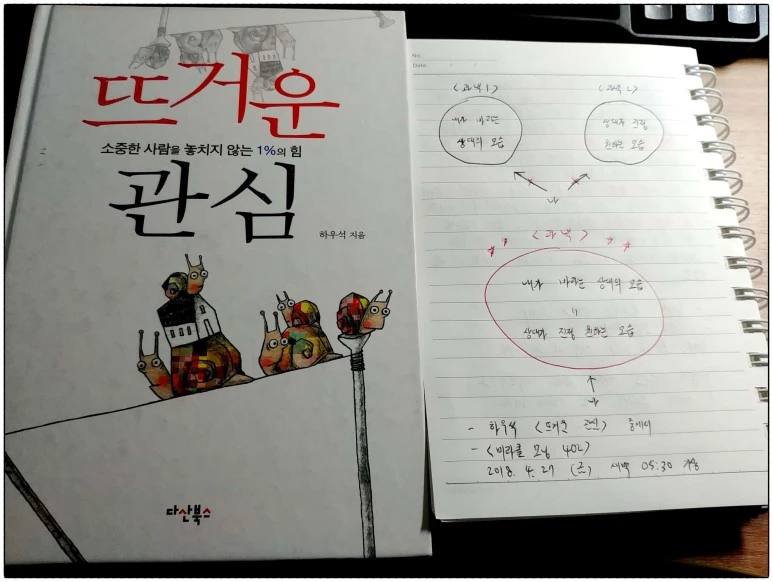 뜨거운
소중한 사람을 놓치지 않는 1%의 힘
관심
하우석 지음
다산북스
No.
Date
<과녁1>
<과녁2>
내가 바라는
상대의 모습
상대가 진정
원하는 모습
나
<과녁>
내가 바라는 상대의 모습
=
상대가 진정 원하는 모습
나
- 하우석 <뜨거운 관심> 중에서
- <미라클 모닝 402>
2018. 4. 27 (금) 새벽 05:30 기상